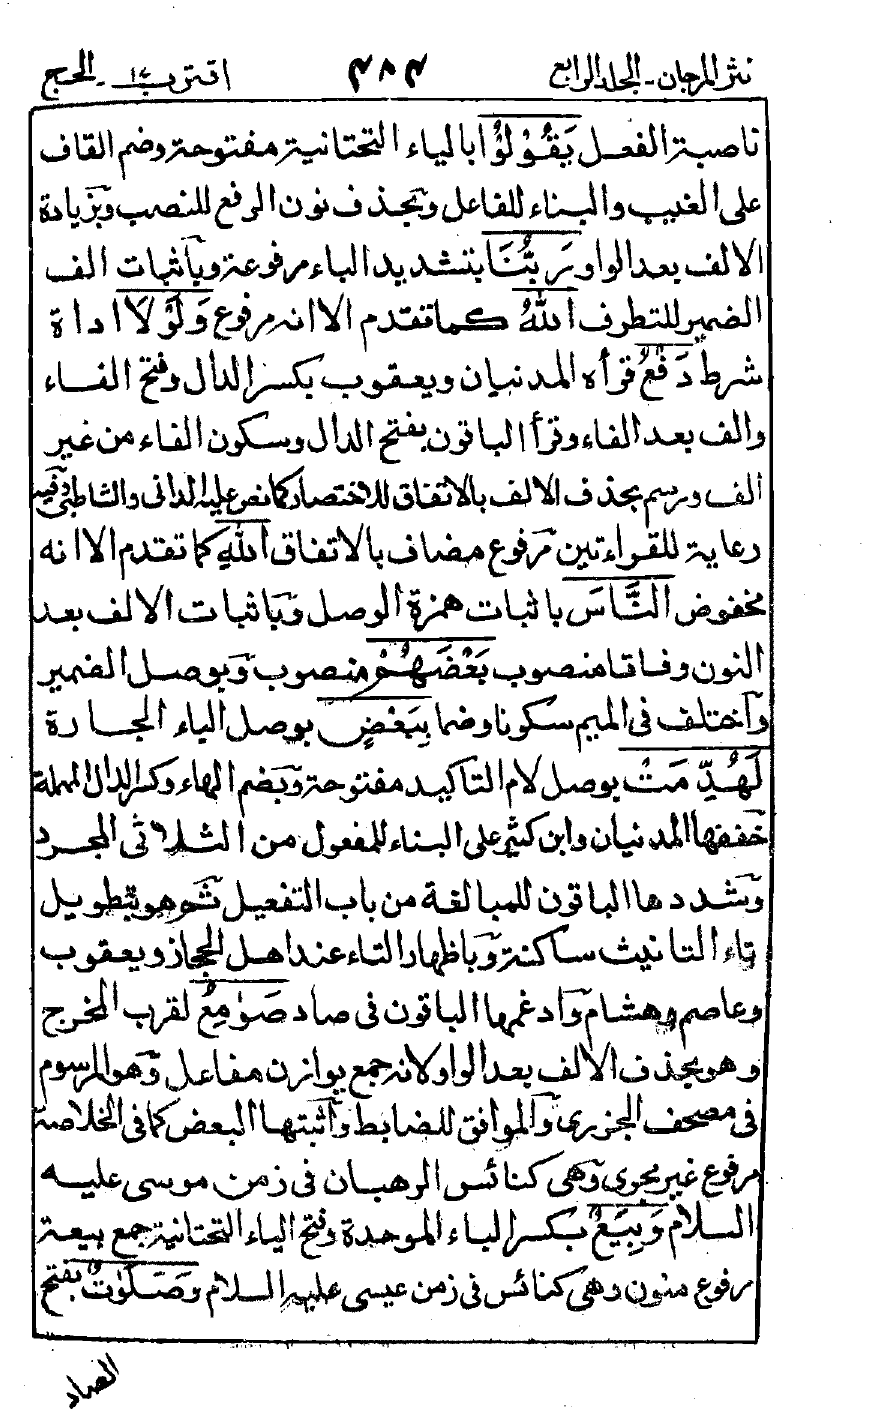 نثر المرجان - المجلد الرابع ٣٨٣ اقترب ١٧ - الحج
ناصبة الفعل يَقُوْلُوْا بالياء التحتانية مفتوحة وضم القاف
على الغيب والبناء للفاعل وبحذف نون الرفع للنصب وبزيادة
الالف بعد الواو رَبُّنَا بتشديد الباء مرفوعة وباثبات الف
الضمير للتطرف اللّٰهُ كما تقدم الا انه مرفوع وَلَوْلَا اداة
شرط دَفْعُ قرأه المدنيان ويعقوب بكسر الدال وفتح الفاء
والف بعد الفاء وقرأ الباقون بفتح الدال وسكون الفاء من غير
الف ورسم بحذف الالف بالاتفاق للاختصار كما نص عليه الدانى والشاطبى وفيه
رعاية للقراءتين مرفوع مضاف بالاتفاق اللّٰهِ كما تقدم الا انه
مخفوض النَّاسَ باثبات همزة الوصل وباثبات الالف بعد
النون وفاقا منصوب بَعْضَهُمْ منصوب وبوصل الضمير
واختلف فى الميم سكونا وضما بِبَعْضٍ بوصل الباء الجارة
لَهُدِّمَتْ بوصل لام التاكيد مفتوحة وبضم الهاء وكسر الدال المهملة
خففها المدنيان وابن كثير على البناء للمفعول من الثلاثى المجرد
وشددها الباقون للمبالغة من باب التفعيل ثم هو بتطويل
تاء التانيث ساكنة وباظهار التاء عند اهل الحجاز ويعقوب
وعاصم وهشام وادغمها الباقون فى صاد صَوٰمِعُ لقرب المخرج
وهو بحذف الالف بعد الواو لانه جمع يوازن مفاعل وهو المرسوم
فى مصحف الجزرى والموافق للضابط واثبتها البعض كما فى الخلاصة
مرفوع غير مجرى وهى كنائس الرهبان فى زمن موسى عليه
السلام وَبِيَعٌ بكسر الباء الموحدة وفتح الياء التحتانية جمع بيعة
مرفوع منون وهى كنائس فى زمن عيسى عليه السلام وَصَلَوٰتٌ بفتح
الصاد